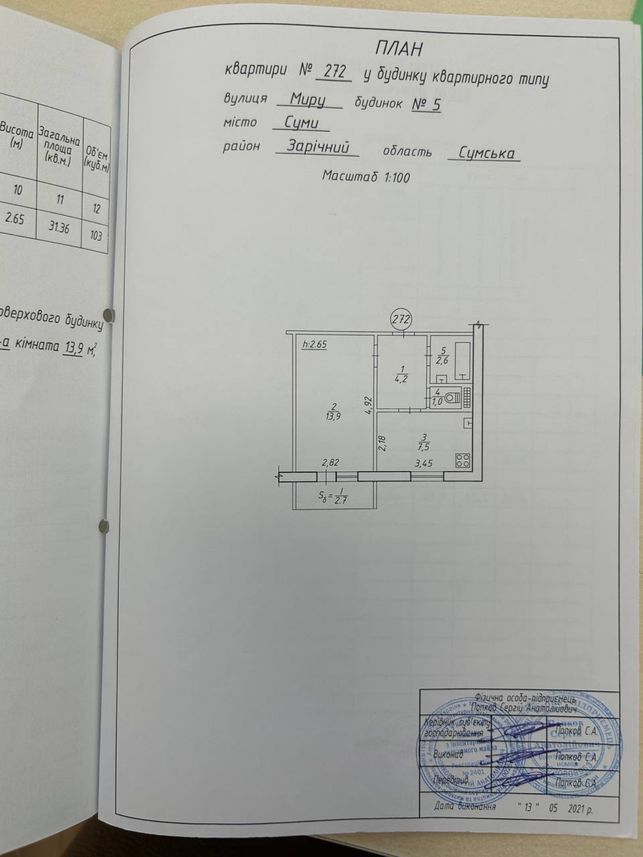 Висота
(м)
Загальна
площа
(кв.м.)
Об'єм
(куб.м)
10
11
12
2.65
31.36
103
оверхового будинку
-а кімната 13,9 м²,
ПЛАН
квартири № 272 у будинку квартирного типу
вулиця Миру будинок № 5
місто Суми
район Зарічний область Сумська
Масштаб 1:100
272
h:2.65
1
4,2
5
2,6
4
1,0
2
13,9
4,92
2,18
3
7,5
2,82
3,45
Sб = 1
2.7
Фізична особа-підприємець
Попков Сергій Анатолійович
Керівник суб'єкт
господарювання
Попков С.А.
Виконав
Попков С.А.
Перевірив
Попков С.А.
№ 2401
Дата виконання "13" 05 2021 р.